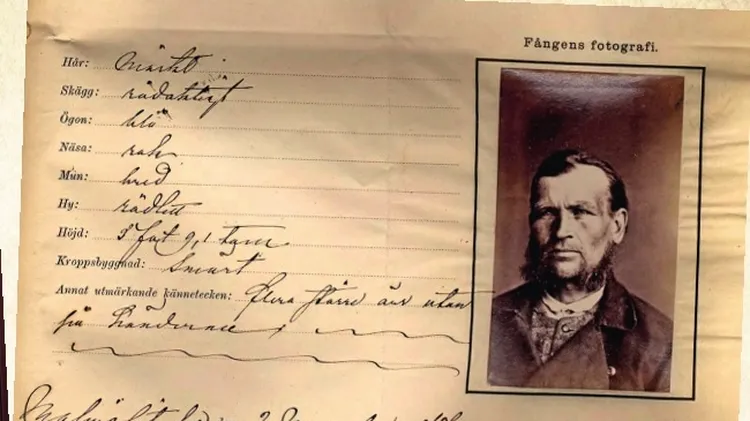 Fångens fotografi.
Hår: Mörkt
Skägg: rödaktigt
Ögon: blå
Näsa: rak
Mun: bred
Hy: rödlett
Höjd: 5 fot 9,1 tum
Kroppsbyggnad: Smärt
Annat utmärkande kännetecken: Flera större ärr utan
på händerna